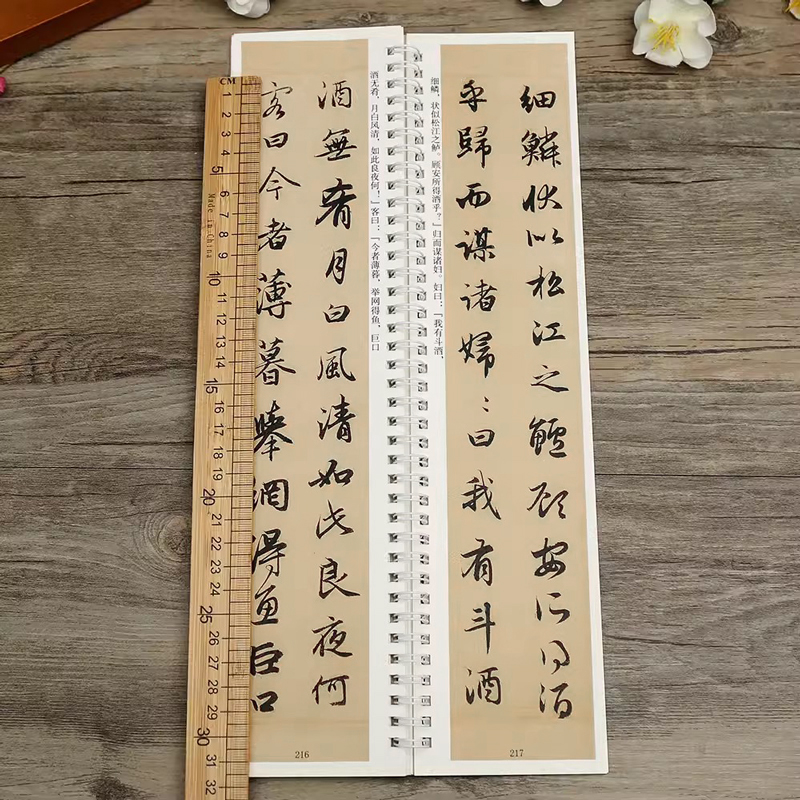 酒无肴，月白风清，如此良夜何！」客曰：「今者薄暮，举网得鱼，巨口
酒無肴月白風清如此良夜何
客曰今者薄暮舉網得魚巨口
216
細鱗狀似松江之鱸顧安所得酒
乎歸而謀諸婦〻曰我有斗酒
细鳞，状似松江之鲈。顾安所得酒乎？」归而谋诸妇。妇曰：「我有斗酒，
217
CM
1
2
3
4
5
6
7
8
9
10
11
12
13
14
15
16
17
18
19
20
21
22
23
24
25
26
27
28
29
30
31
32
Made in China